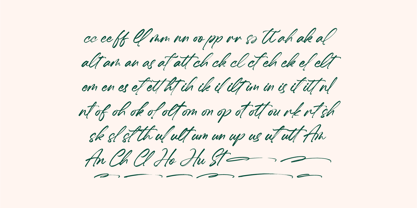 cc ee ff ll mm nn oo pp rr ss tt ah ak al
alt am an as at att ch ck cl ct eh ek el elt
em en es et ett ht ih ik il ilt im in is it itt nl
nt of oh ok ol olt om on op ot ott ou rk rt sh
sk sl st th ul ult um un up us ut utt Am
An Ch Cl Ho Hu St